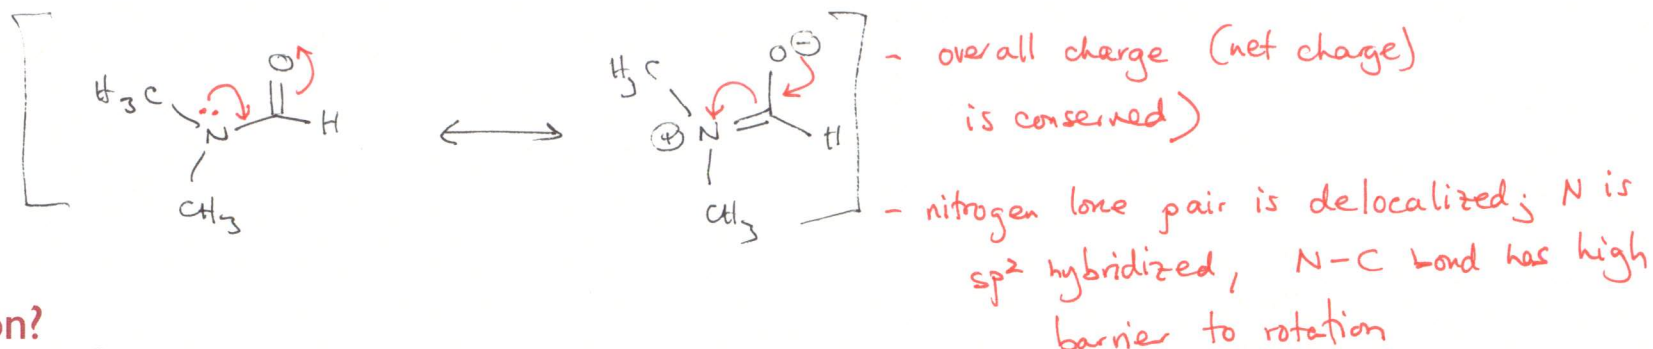 O
H3C
N
H
CH3
O ⊖
H3C
⊕ N
H
CH3
- overall charge (net charge)
is conserved)
- nitrogen lone pair is delocalized; N is
sp² hybridized, N-C bond has high
barrier to rotation
on?